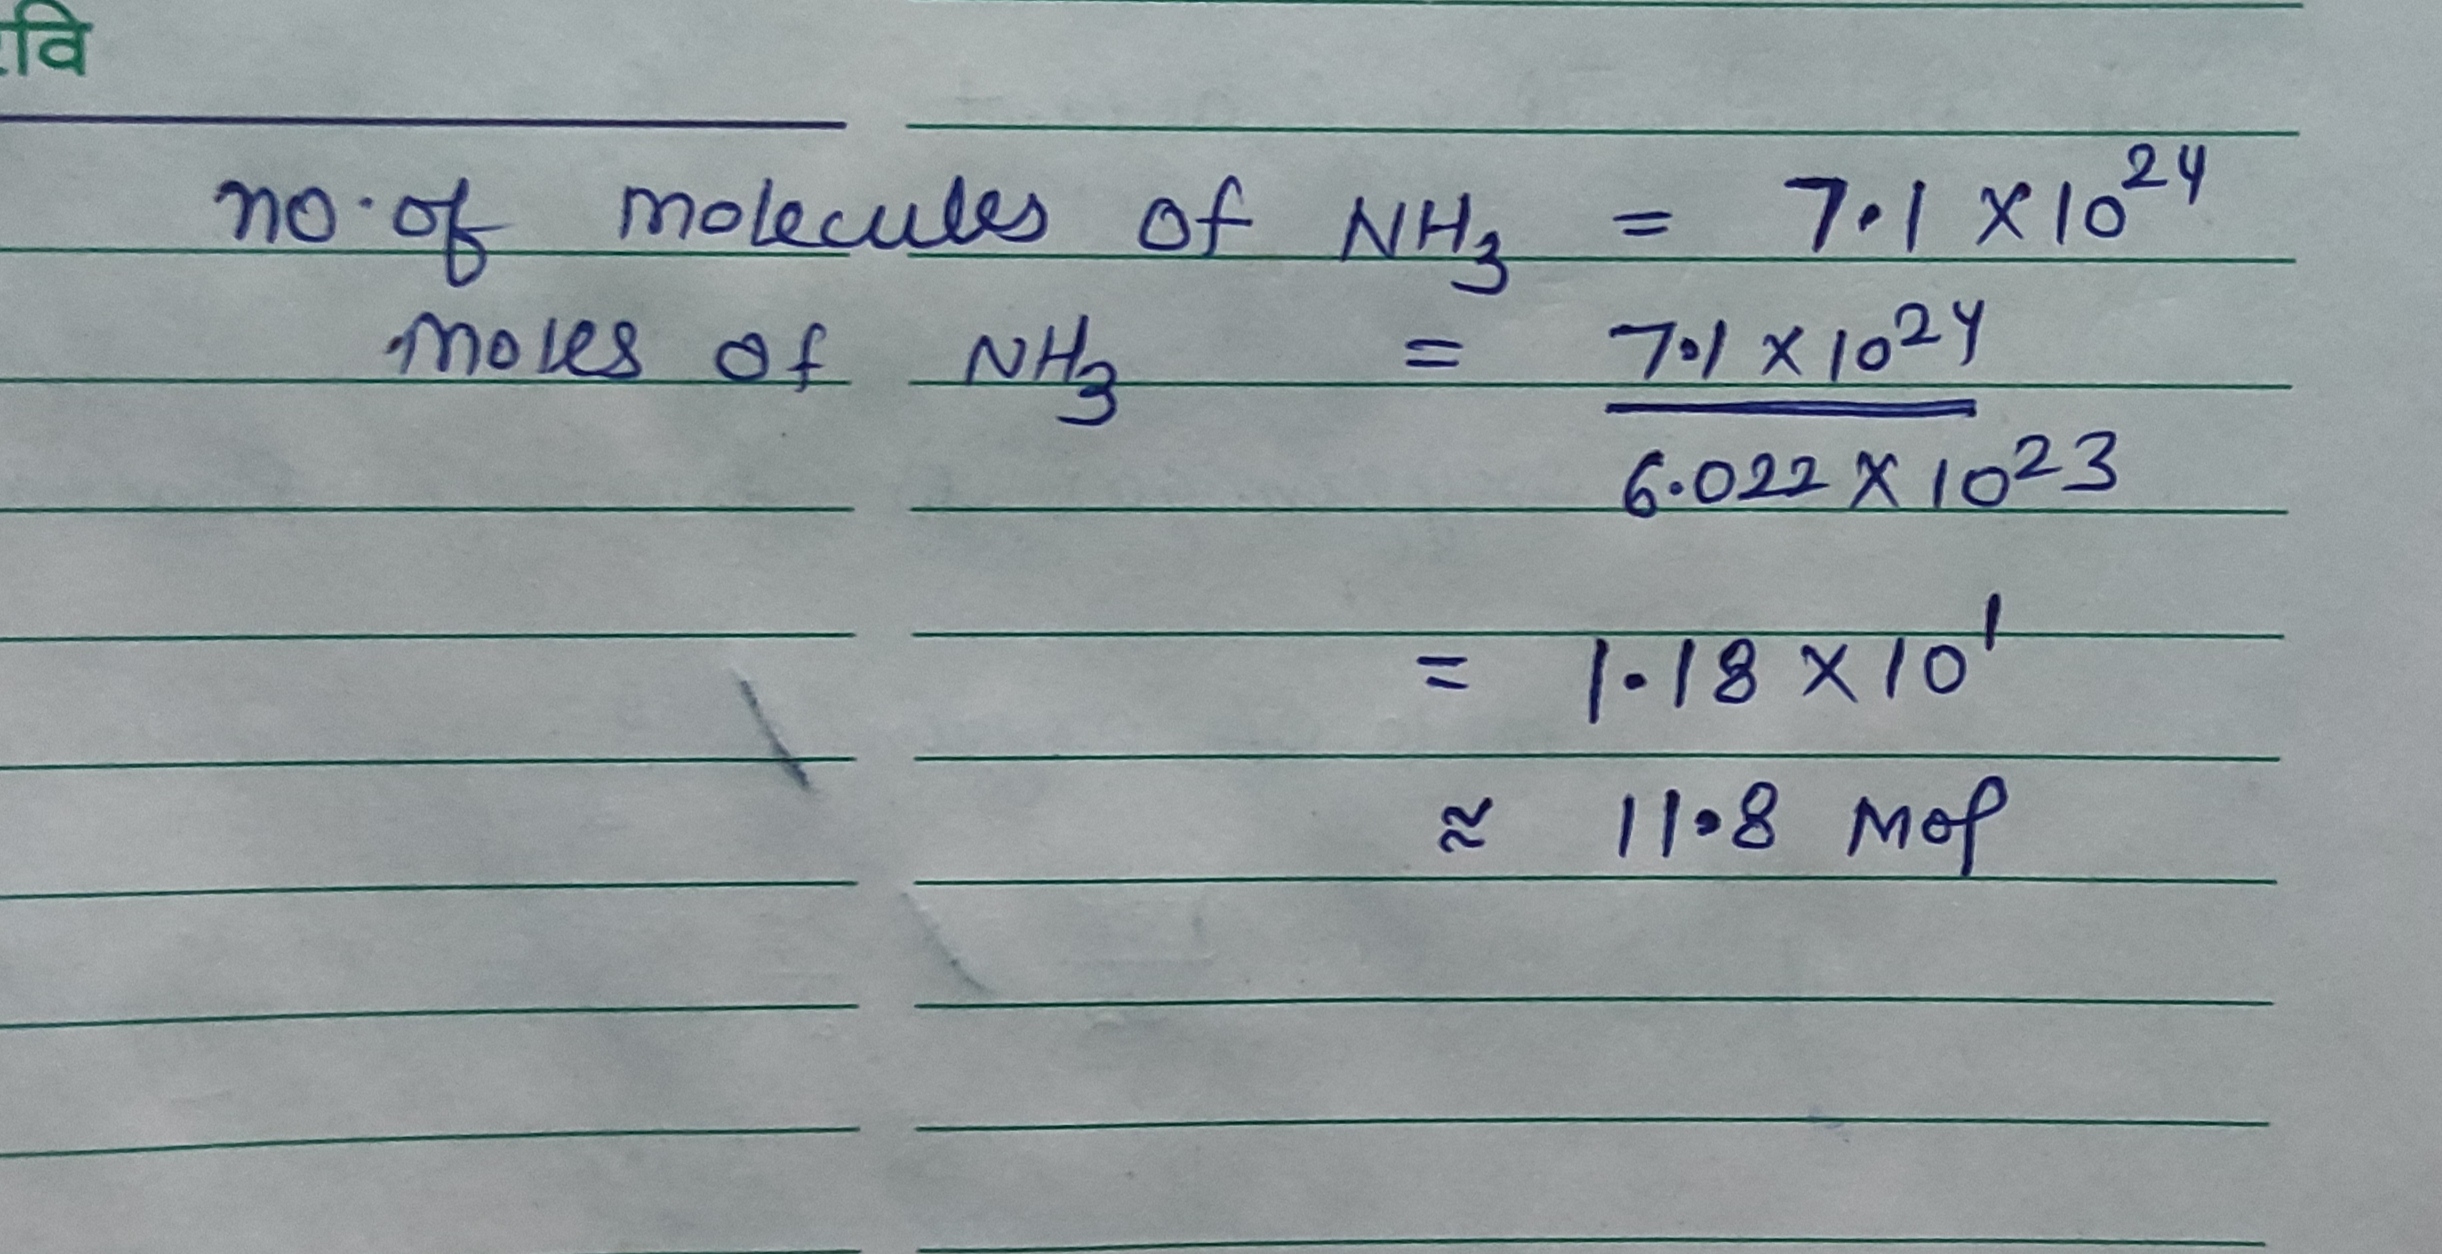 वि
no. of molecules of NH₃ = 7.1 × 10²⁴
moles of NH₃ = 7.1 × 10²⁴
6.022 × 10²³
= 1.18 × 10¹
≈ 11.8 Mol